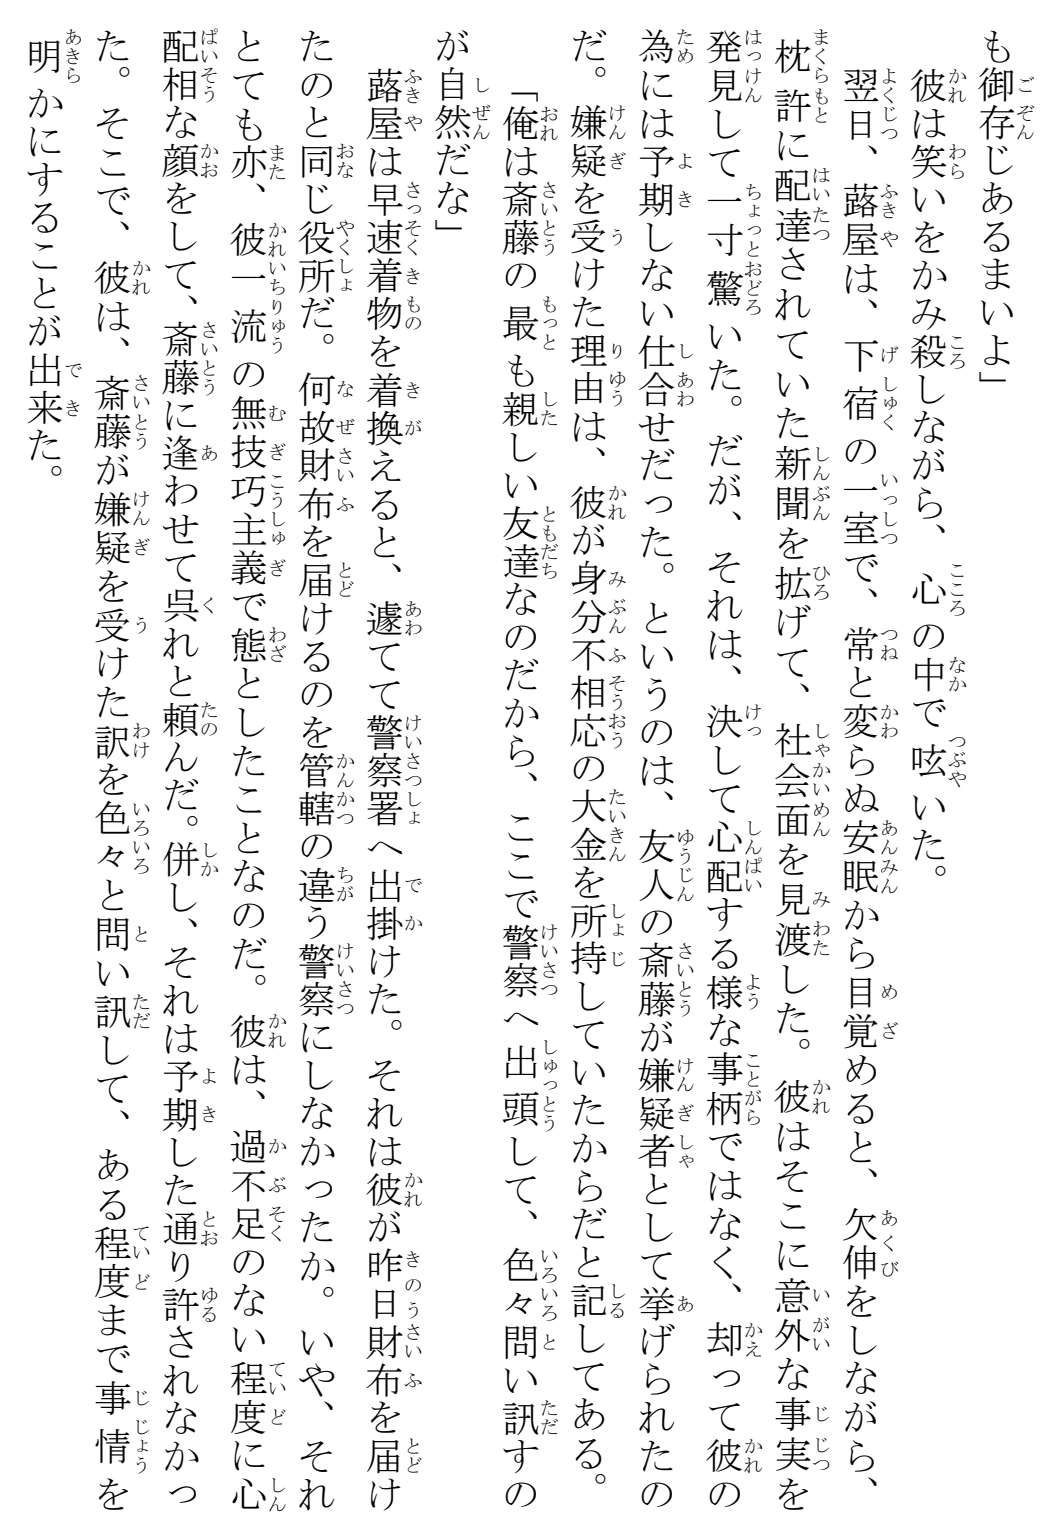 も御存じあるまいよ」
彼は笑いをかみ殺しながら、心の中で呟いた。
翌日、蕗屋は、下宿の一室で、常と変らぬ安眠から目覚めると、欠伸をしながら、
枕許に配達されていた新聞を拡げて、社会面を見渡した。彼はそこに意外な事実を
発見して一寸驚いた。だが、それは、決して心配する様な事柄ではなく、却って彼の
為には予期しない仕合せだった。というのは、友人の斎藤が嫌疑者として挙げられたの
だ。嫌疑を受けた理由は、彼が身分不相応の大金を所持していたからだと記してある。
「俺は斎藤の最も親しい友達なのだから、ここで警察へ出頭して、色々問い訊すの
が自然だな」
蕗屋は早速着物を着換えると、遽てて警察署へ出掛けた。それは彼が昨日財布を届け
たのと同じ役所だ。何故財布を届けるのを管轄の違う警察にしなかったか。いや、それ
とても亦、彼一流の無技巧主義で態としたことなのだ。彼は、過不足のない程度に心
配相な顔をして、斎藤に逢わせて呉れと頼んだ。併し、それは予期した通り許されなかっ
た。そこで、彼は、斎藤が嫌疑を受けた訳を色々と問い訊して、ある程度まで事情を
明かにすることが出来た。